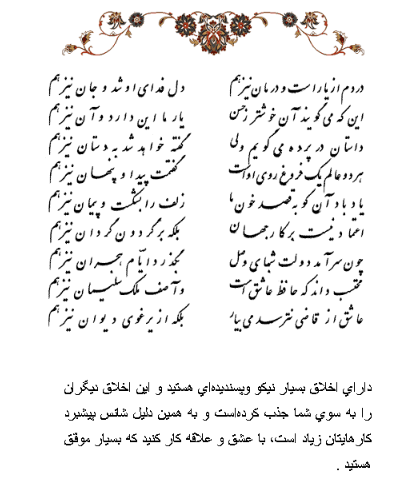 دردم از یار است و درمان نیز هم دل فدای او شد و جان نیز هم
این که می گویند آن خوشتر ز حسن یار ما این دارد و آن نیز هم
داستان در پرده می گویم ولی گفته خواهد شد به دستان نیز هم
هر دو عالم یک فروغ روی اوست گفتمت پیدا و پنهان نیز هم
یاد باد آن کو به قصد خون ما زلف را بشکست و پیمان نیز هم
اعتمادی نیست بر کار جهان بلکه بر گردون گردان نیز هم
چون سرآمد دولت شبهای وصل بگذرد ایّام هجران نیز هم
محتسب داند که حافظ عاشق است وآصف ملک سلیمان نیز هم
عاشق از قاضی نترسد می بیار بلکه از یرغوی دیوان نیز هم
داراي اخلاق بسيار نيكو وپسنديده‌اي هستيد و اين اخلاق ديگران
را به سوي شما جذب كرده‌است و به همين دليل شانس پيشبرد
كارهايتان زياد است، با عشق و علاقه كار كنيد كه بسيار موفق
هستيد .